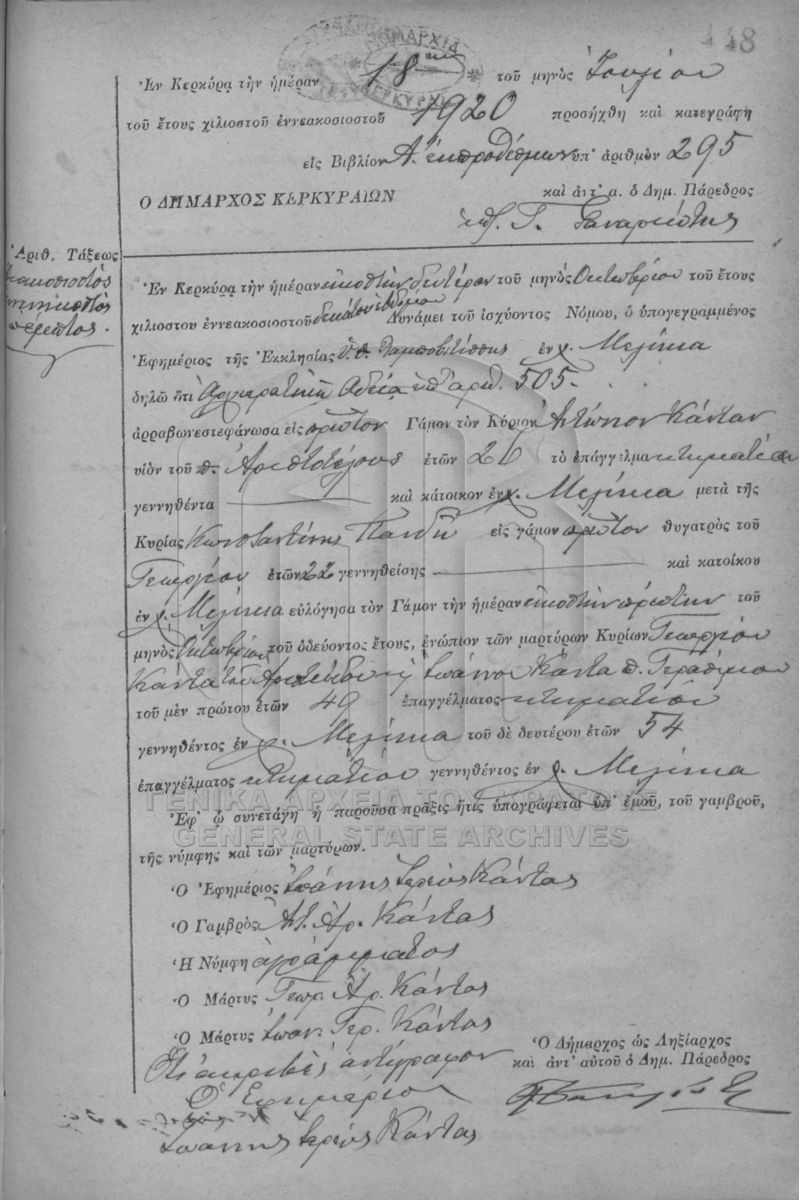 148
Ἐν Κερκύρᾳ τὴν ἡμέραν 18ην τοῦ μηνὸς Ἰουλίου
τοῦ ἔτους χιλιοστοῦ ἐννεακοσιοστοῦ 1920 προσήχθη καὶ κατεγράφη
εἰς Βιβλίον Α. ἐκπροθέσμων ὑπ' ἀριθμὸν 295
Ο ΔΗΜΑΡΧΟΣ ΚΕΡΚΥΡΑΙΩΝ καὶ ἀντ' α. ὁ Δημ. Πάρεδρος
Ἀριθ. Τάξεως
διακοσιοστὸς
πέμπτος.
Ἐν Κερκύρᾳ τὴν ἡμέραν εἰκοστὴν δευτέραν τοῦ μηνὸς Ὀκτωβρίου τοῦ ἔτους
χιλιοστοῦ ἐννεακοσιοστοῦ δεκάτου ἑβδόμου Δυνάμει τοῦ ἰσχύοντος Νόμου, ὁ ὑπογεγραμμένος
Ἐφημέριος τῆς Ἐκκλησίας Ὑ. Θ. ἐν χ. Μελίκια
δηλῶ ὅτι Ἀρχιερατικῇ Ἀδείᾳ ὑπ' ἀριθ. 505.
ἀρραβωνεστεφάνωσα εἰς πρῶτον Γάμον τὸν Κύριον Ἀντώνιον Κάνταν
υἱὸν τοῦ π. Ἀριστοτέλους ἐτῶν 26 τὸ ἐπάγγελμα κτηματίαν
γεννηθέντα καὶ κάτοικον ἐν χ. Μελίκια μετὰ τῆς
Κυρίας Κωνσταντίνης Πανδῆ εἰς γάμον πρῶτον θυγατρὸς τοῦ
Γεωργίου ἐτῶν 22 γεννηθείσης καὶ κατοίκου
ἐν χ. Μελίκια εὐλόγησα τὸν Γάμον τὴν ἡμέραν εἰκοστὴν πρώτην τοῦ
μηνὸς Ὀκτωβρίου τοῦ ὁδεύοντος ἔτους, ἐνώπιον τῶν μαρτύρων Κυρίων Γεωργίου
Κάντα τοῦ Ἀριστείδου ἢ Ἰωάννου Κάντα π. Γερασίμου
τοῦ μὲν πρώτου ἐτῶν 49 ἐπαγγέλματος κτηματίου
γεννηθέντος ἐν χ. Μελίκια τοῦ δὲ δευτέρου ἐτῶν 54
ἐπαγγέλματος κτηματίου γεννηθέντος ἐν χ. Μελίκια
ΓΕΝΙΚΑ ΑΡΧΕΙΑ ΤΟΥ ΚΡΑΤΟΥΣ
Ἐφ' ᾧ συνετάγη ἡ παροῦσα πρᾶξις ἥτις ὑπογράφεται ὑπ' ἐμοῦ, τοῦ γαμβροῦ,
GENERAL STATE ARCHIVES
τῆς νύμφης καὶ τῶν μαρτύρων.
Ὁ Ἐφημέριος Ἰωάννης Ἱερεὺς Κάντας
Ὁ Γαμβρὸς Ἀντ. Ἀρ. Κάντας
Ἡ Νύμφη ἀγράμματος
Ὁ Μάρτυς Γεωρ. Ἀρ. Κάντας
Ὁ Μάρτυς Ἰωάν. Γερ. Κάντας
Ὁ Δήμαρχος ὡς Ληξίαρχος
καὶ ἀντ' αὐτοῦ ὁ Δημ. Πάρεδρος
Ὅτι ἀκριβὲς ἀντίγραφον
Ὁ Ἐφημέριος
Ἰωάννης Ἱερεὺς Κάντας